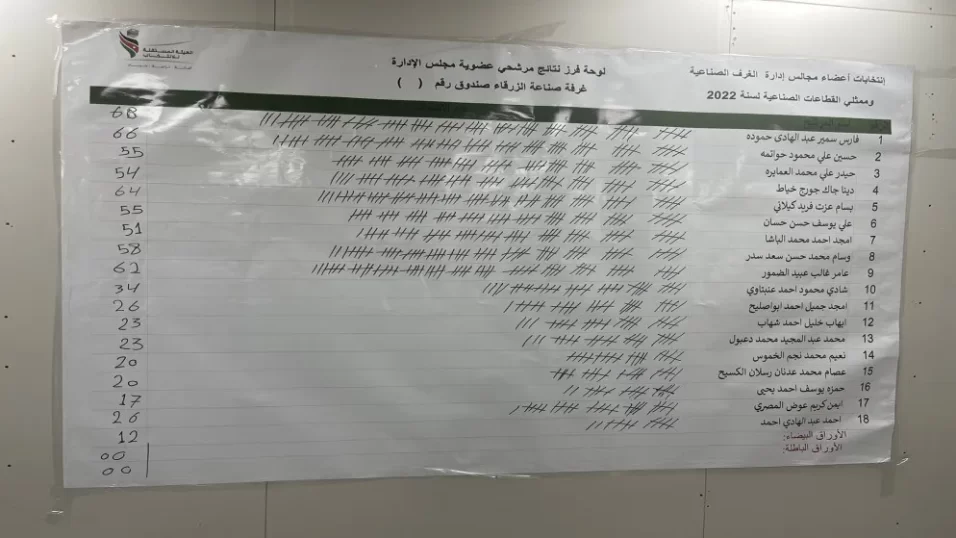 الهيئة المستقلة للانتخاب
إنتخابات أعضاء مجالس إدارة الغرف الصناعية
وممثلي القطاعات الصناعية لسنة 2022
لوحة فرز نتائج مرشحي عضوية مجلس الإدارة
غرفة صناعة الزرقاء صندوق رقم ( )
1 فارس سمير عبد الهادي حموده 68
2 حسين علي محمود حواتمه 66
3 حيدر علي محمد العمايره 55
4 دينا جاك جورج خياط 54
5 بسام عزت فريد كيلاني 64
6 علي يوسف حسن حسان 55
7 امجد احمد محمد الباشا 51
8 وسام محمد حسن سعد سدر 58
9 عامر غالب عبيد الضمور 62
10 شادي محمود احمد عنبتاوي 34
11 امجد جميل احمد ابواصليح 26
12 ايهاب خليل احمد شهاب 23
13 محمد عبد المجيد محمد دعبول 23
14 نعيم محمد نجم الخموس 20
15 عصام محمد عدنان رسلان الكسيح 20
16 حمزه يوسف احمد يحيى 17
17 ايمن كريم عوض المصري 26
18 احمد عبد الهادي احمد 12
الأوراق البيضاء: 00
الأوراق الباطلة: 00